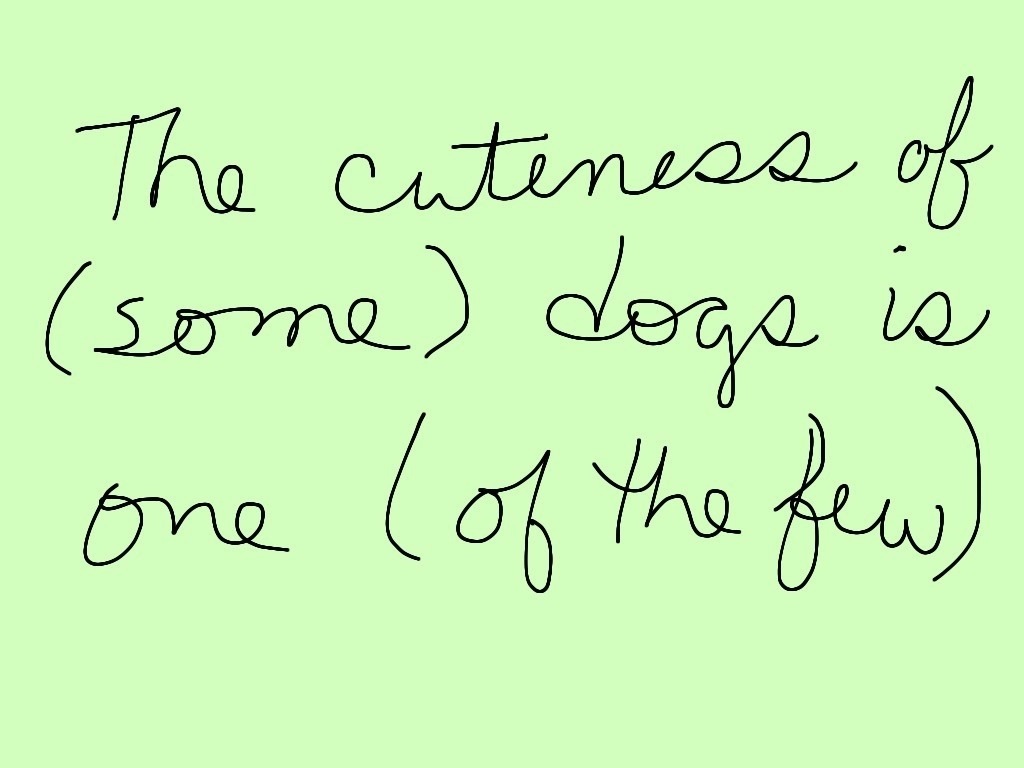 The cuteness of
(some) dogs is
one (of the few)